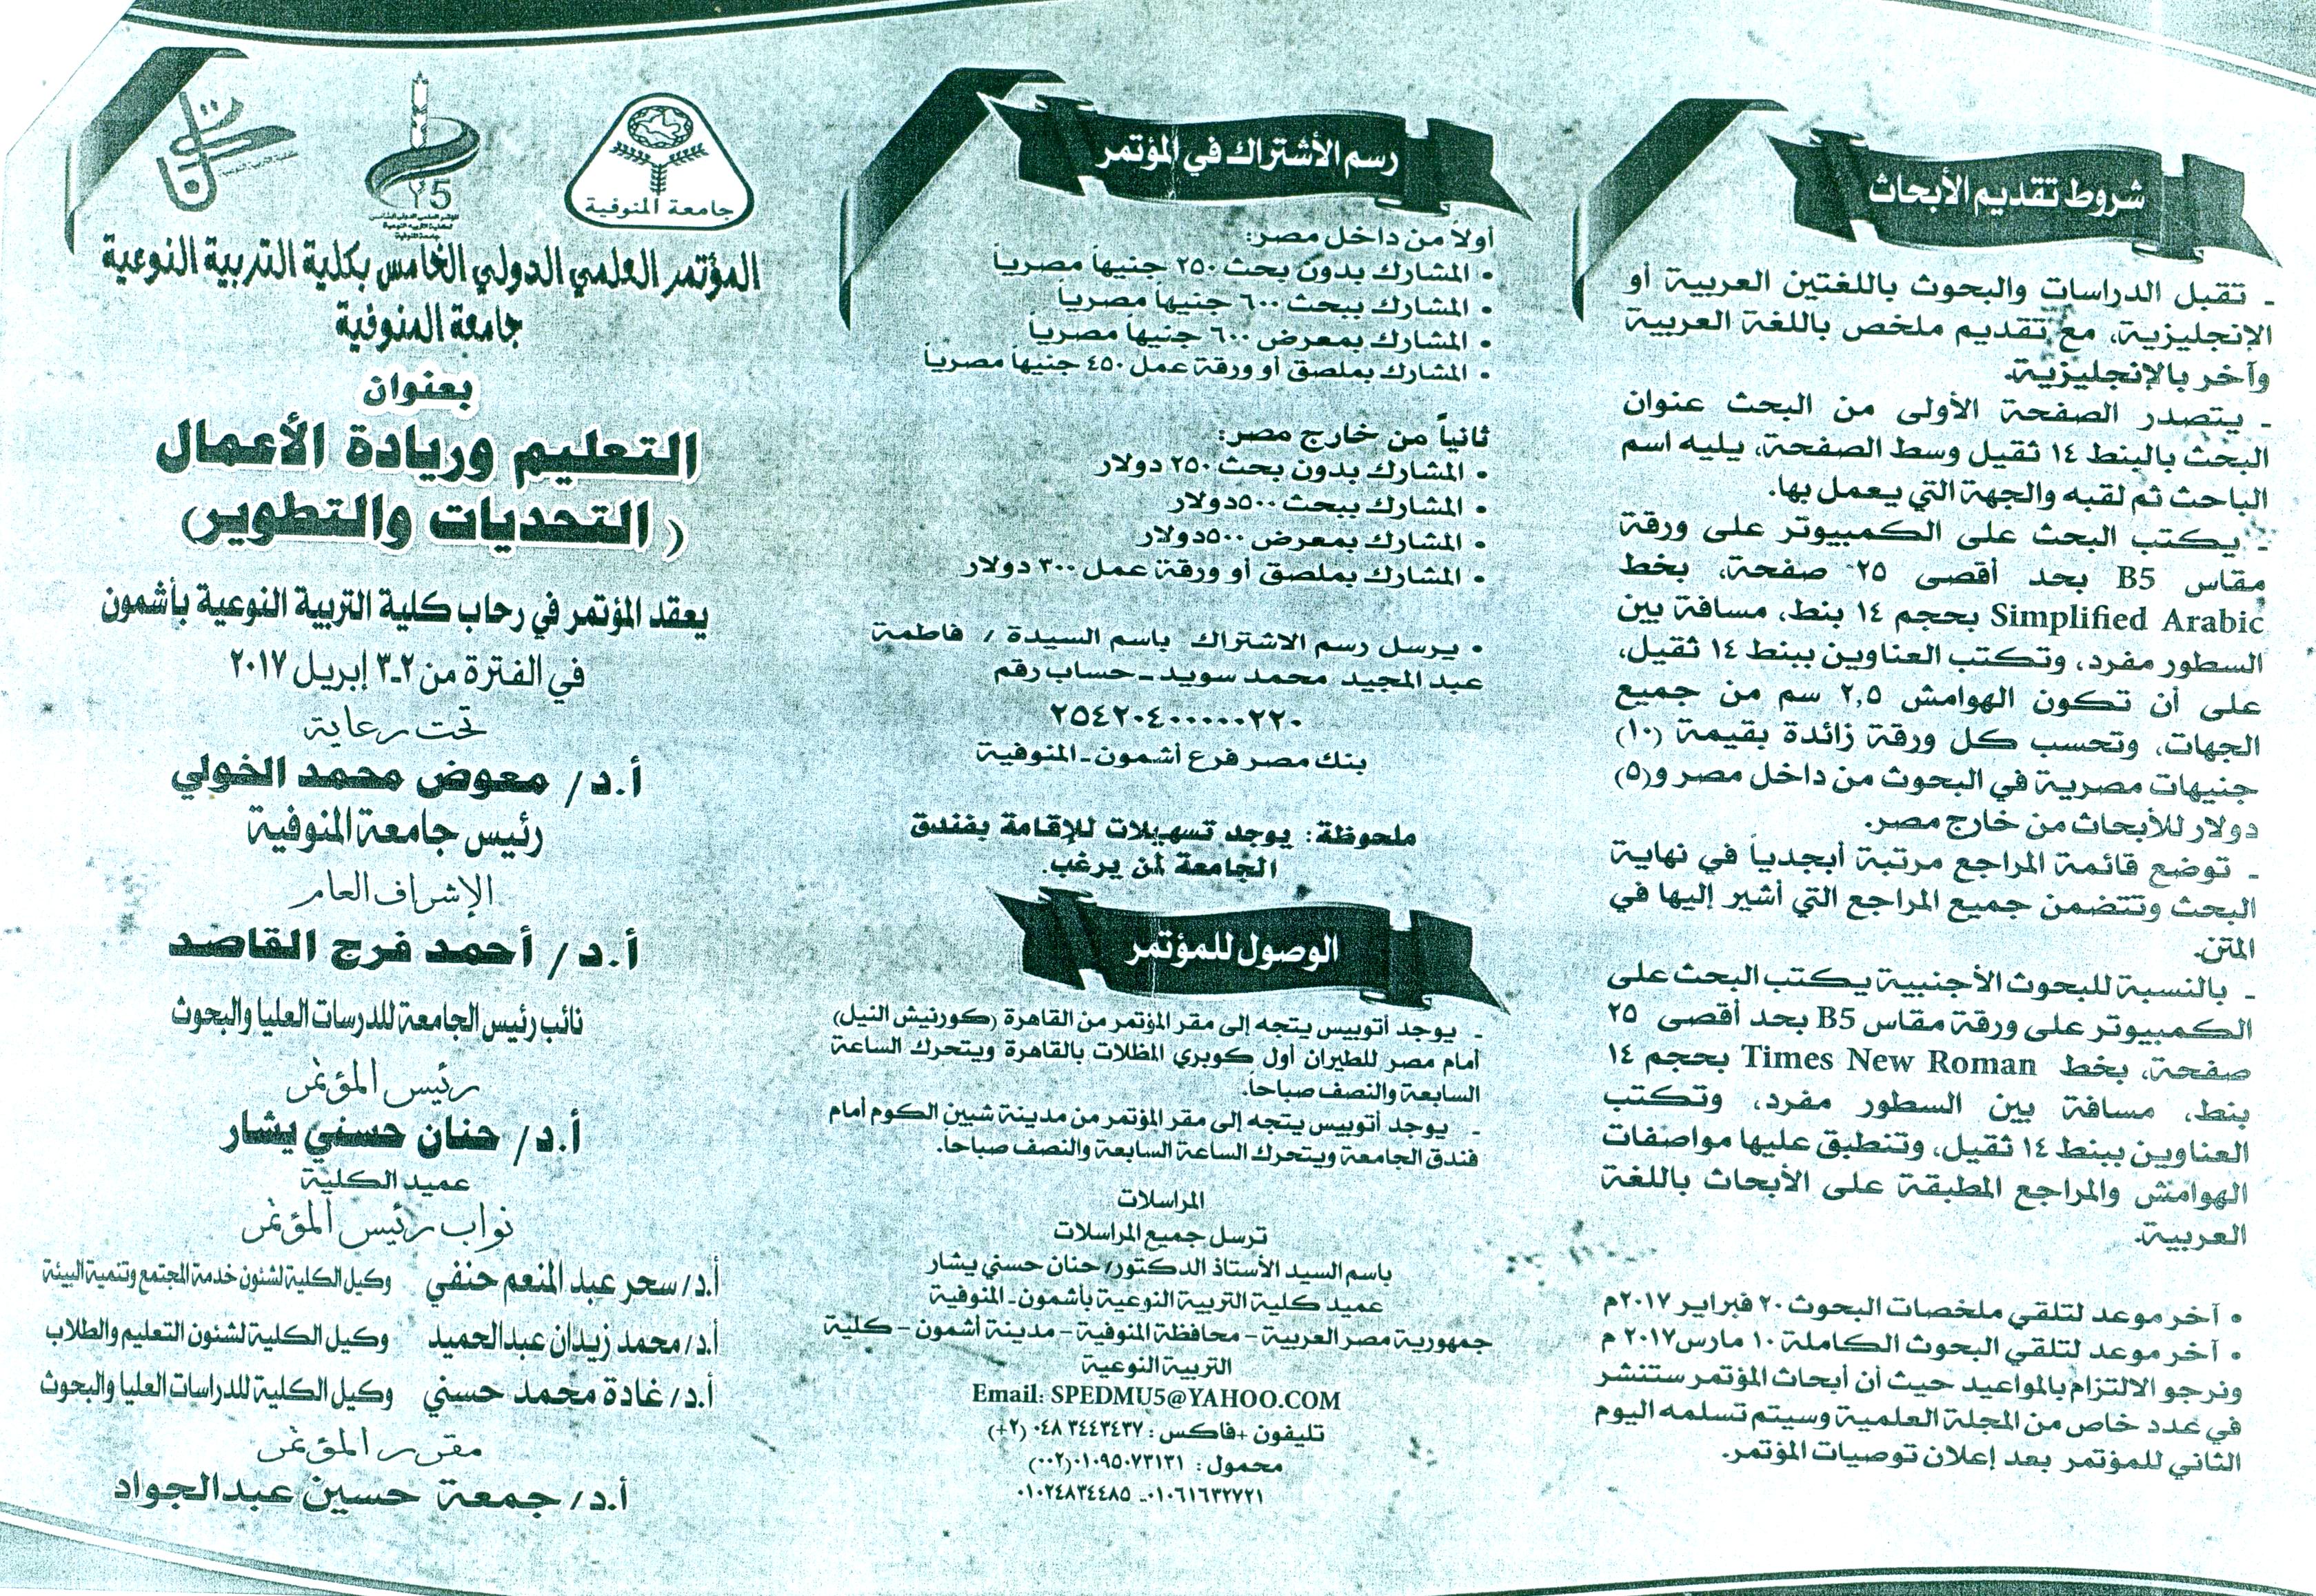 شروط تقديم الأبحاث
- تقبل الدراسات والبحوث باللغتين العربية أو
الإنجليزية، مع تقديم ملخص باللغة العربية
وآخر بالإنجليزية.
- يتصدر الصفحة الأولى من البحث عنوان
البحث بالبنط ١٤ ثقيل وسط الصفحة، يليه اسم
الباحث ثم لقبه والجهة التي يعمل بها.
- يكتب البحث على الكمبيوتر على ورقة
مقاس B5 بحد أقصى ٢٥ صفحة، بخط
Simplified Arabic بحجم ١٤ بنط، مسافة بين
السطور مفرد، وتكتب العناوين ببنط ١٤ ثقيل،
على أن تكون الهوامش ٢,٥ سم من جميع
الجهات، وتحسب كل ورقة زائدة بقيمة (١٠)
جنيهات مصرية في البحوث من داخل مصر و(٥)
دولار للأبحاث من خارج مصر.
- توضع قائمة المراجع مرتبة أبجدياً في نهاية
البحث وتتضمن جميع المراجع التي أشير إليها في
المتن.
- بالنسبة للبحوث الأجنبية يكتب البحث على
الكمبيوتر على ورقة مقاس B5 بحد أقصى ٢٥
صفحة، بخط Times New Roman بحجم ١٤
بنط، مسافة بين السطور مفرد، وتكتب
العناوين ببنط ١٤ ثقيل، وتنطبق عليها مواصفات
الهوامش والمراجع المطبقة على الأبحاث باللغة
العربية.
• آخر موعد لتلقي ملخصات البحوث ٢٠ فبراير ٢٠١٧م
• آخر موعد لتلقي البحوث الكاملة ١٠ مارس ٢٠١٧ م
ونرجو الالتزام بالمواعيد حيث أن أبحاث المؤتمر ستنشر
في عدد خاص من المجلة العلمية وسيتم تسلمه اليوم
الثاني للمؤتمر بعد إعلان توصيات المؤتمر.
رسم الأشتراك في المؤتمر
أولاً من داخل مصر:
• المشارك بدون بحث ٢٥٠ جنيهاً مصرياً
• المشارك ببحث ٦٠٠ جنيهاً مصرياً
• المشارك بمعرض ٦٠٠ جنيهاً مصرياً
• المشارك بملصق أو ورقة عمل ٤٥٠ جنيهاً مصرياً
ثانياً من خارج مصر:
• المشارك بدون بحث ٢٥٠ دولار
• المشارك ببحث ٥٠٠دولار
• المشارك بمعرض ٥٠٠دولار
• المشارك بملصق أو ورقة عمل ٣٠٠ دولار
• يرسل رسم الاشتراك باسم السيدة / فاطمة
عبد المجيد محمد سويد - حساب رقم
٢٥٤٢٠٤٠٠٠٠٠٢٢٠
بنك مصر فرع أشمون - المنوفية
ملحوظة: يوجد تسهيلات للإقامة بفندق
الجامعة لمن يرغب.
الوصول للمؤتمر
- يوجد أتوبيس يتجه إلى مقر المؤتمر من القاهرة (كورنيش النيل)
أمام مصر للطيران أول كوبري المظلات بالقاهرة ويتحرك الساعة
السابعة والنصف صباحاً.
- يوجد أتوبيس يتجه إلى مقر المؤتمر من مدينة شبين الكوم أمام
فندق الجامعة ويتحرك الساعة السابعة والنصف صباحا.
المراسلات
ترسل جميع المراسلات
باسم السيد الأستاذ الدكتور/ حنان حسني يشار
عميد كلية التربية النوعية بأشمون - المنوفية
جمهورية مصر العربية - محافظة المنوفية - مدينة أشمون - كلية
التربية النوعية
Email: SPEDMU5@YAHOO.COM
تليفون +فاكس : ٠٤٨ ٣٤٤٣٤٣٧ (٢+)
محمول : ٠١٠٩٥٠٧٣١٣١(٠٠٢)
٠١٠٦١٦٣٢٧٢١ - ٠١٠٢٤٨٣٤٤٨٥
جامعة المنوفية
5
المؤتمر العلمي الدولي الخامس
لكلية التربية النوعية
جامعة المنوفية
المؤتمر العلمي الدولي الخامس بكلية التربية النوعية
جامعة المنوفية
بعنوان
التعليم وريادة الأعمال
( التحديات والتطوير)
يعقد المؤتمر في رحاب كلية التربية النوعية بأشمون
في الفترة من ٢-٣ إبريل ٢٠١٧
تحت رعاية
أ.د/ معوض محمد الخولي
رئيس جامعة المنوفية
الإشراف العام
أ.د/ أحمد فرج القاصد
نائب رئيس الجامعة للدرسات العليا والبحوث
رئيس المؤتمر
أ.د/ حنان حسني يشار
عميد الكلية
نواب رئيس المؤتمر
أ.د/ سحر عبد المنعم حنفي وكيل الكلية لشئون خدمة المجتمع وتنمية البيئة
أ.د/ محمد زيدان عبدالحميد وكيل الكلية لشئون التعليم والطلاب
أ.د/ غادة محمد حسني وكيل الكلية للدراسات العليا والبحوث
مقرر المؤتمر
أ.د/ جمعة حسين عبدالجواد